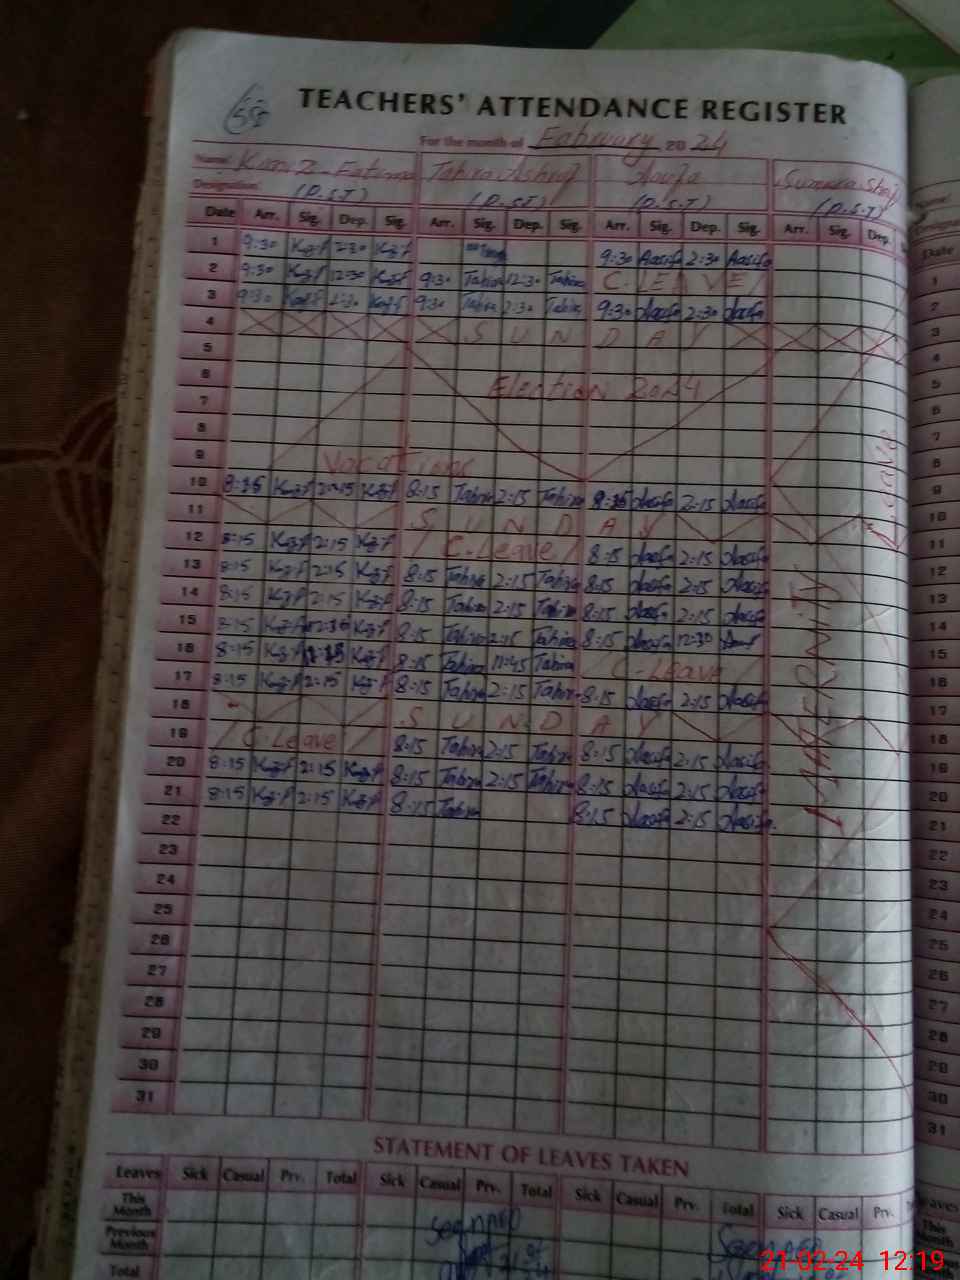 TEACHERS' ATTENDANCE REGISTER
For the month of Fabruary 2024
Name: Kaniz-Fatima Tahira Ashraf Aasifa Sumera Name:
Designation: (P.S.T) (P.S.T) (P.S.T) (P.S.T)
Date Arr. Sig. Dep. Sig. Arr. Sig. Dep. Sig. Arr. Sig. Dep. Sig. Arr. Sig. Dep. Date
1 9:30 K.z.f 2:30 K.z.f 9:30 Aasifa 2:30 Aasifa
2 9:30 K.z.f 12:30 K.z.f 9:30 Tahira 12:30 Tahira C-LEAVE 1
3 9:30 K.z.f 2:30 K.z.f 9:30 Tahira 2:30 Tahira 9:30 Aasifa 2:30 Aasifa 2
4 SUNDAY 3
5 4
6 Election 2024 5
7 6
8 7
9 Vacations 8
10 8:15 K.z.f 2:15 K.z.f 8:15 Tahira 2:15 Tahira 8:15 Aasifa 2:15 Aasifa 9
11 SUNDAY 10
12 8:15 K.z.f 2:15 K.z.f C-Leave 8:15 Aasifa 2:15 Aasifa 11
13 8:15 K.z.f 2:15 K.z.f 8:15 Tahira 2:15 Tahira 8:15 Aasifa 2:15 Aasifa 12
14 8:15 K.z.f 2:15 K.z.f 8:15 Tahira 2:15 Tahira 8:15 Aasifa 2:15 Aasifa 13
15 8:15 K.z.f 12:30 K.z.f 8:15 Tahira 2:15 Tahira 8:15 Aasifa 12:30 14
16 8:15 K.z.f K.z.f 8:15 Tahira 11:45 Tahira C-Leave 15
17 8:15 K.z.f 2:15 K.z.f 8:15 Tahira 2:15 Tahira 8:15 Aasifa 2:15 Aasifa 16
18 SUNDAY 17
19 C-Leave 8:15 Tahira 2:15 Tahira 8:15 Aasifa 2:15 Aasifa 18
20 8:15 K.z.f 2:15 K.z.f 8:15 Tahira 2:15 Tahira 8:15 Aasifa 2:15 Aasifa 19
21 8:15 K.z.f 2:15 K.z.f 8:15 Tahira 8:15 Aasifa 2:15 Aasifa 20
MATERNITY Leave
22 21
23 22
24 23
25 24
26 25
27 26
28 27
29 28
30 29
31 30
31
STATEMENT OF LEAVES TAKEN
Leaves Sick Casual Prv. Total Sick Casual Prv. Total Sick Casual Prv. Total Sick Casual Prv.
This Month
Previous Month
Total
21-02-24 12:19